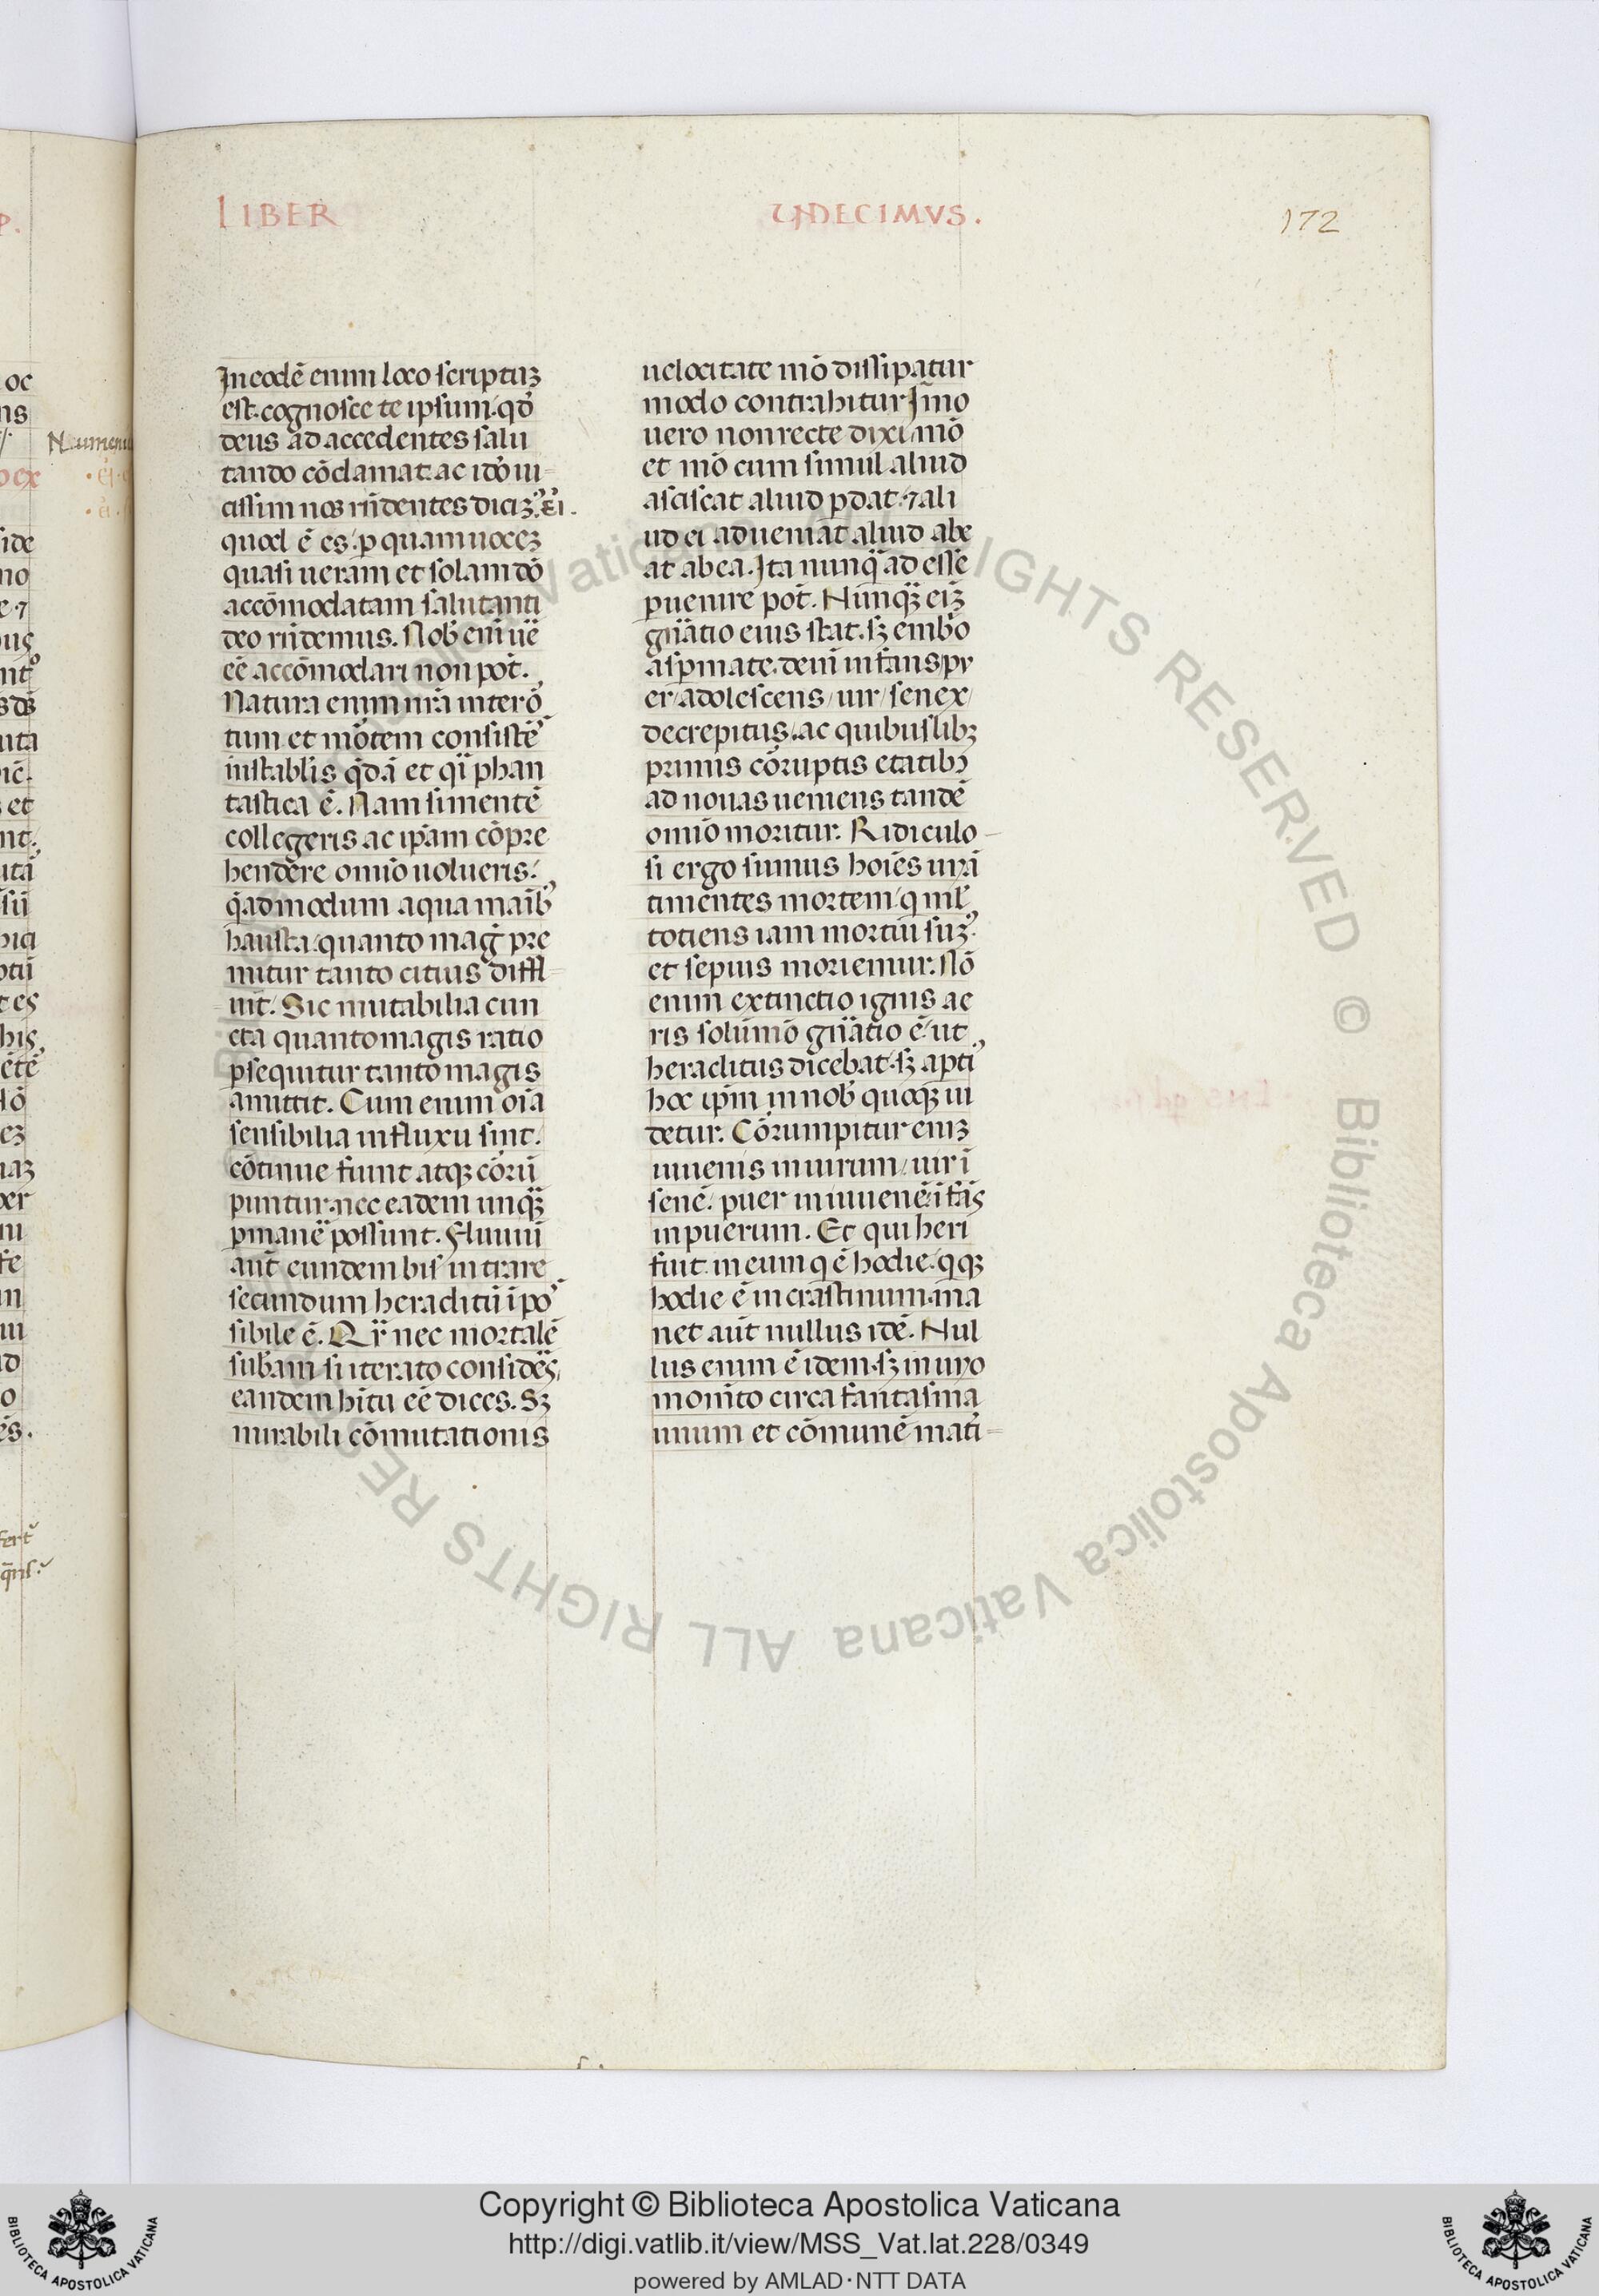 LIBER UNDECIMVS.
172
In eodē enim loco scriptuꝫ
est. cognosce te ipsum. qđ
deus ad accedentes salu
tando cōclamat. ac idō ui-
cissim nos rn̄dentes diciꝫ. εἰ.
quod ē es. p̱ quam uoceꝫ
quasi ueram et solam dō
accōmodatam salutanti
deo rn̄demus. Nob̄ eni ue̅
eē accōmodari non pōt.
Natura enim nrā inter ō
tum et mōtem consistē̅
instablis q̄dā et q̄i phan
tastica ē. Nam si mentē
collegeris ac ip̄am cōpre
hendere omīo uolueris:
q̄admodum aqua manib̄
hausta. quanto mag̅ pre
mitur tanto citius diffl-
uit. Sic mutabilia cun
cta quanto magis ratio
p̱sequitur tanto magis
amittit. Cum enim oīa
sensibilia in fluxu sint.
cōtinue fiunt atqꝫ cōrū
puntur. nec eadem unq̄ꝫ
p̱mane̅ possunt. Fluuiū
aūt eundem bis intrare
secundum heraclitū īpo
sibile ē. Qr̄ nec mortalē
sub̄am si iterato considēs,
eandem hītu eē dices. Sꝫ
mirabili cōmutationis
uelocitate mō dissipatur
modo contrahitur. Jmo
uero non recte dixi. mō
et mō cum simul aliud
asciscat aliud p̱dat. ⁊ ali
ud ei adueniat aliud abe
at ab ea. Ita nunq̄ ad esse
p̱uenire pōt. Nunq̄ꝫ eiꝫ
gn̄atio eius stat. sꝫ embō
a sp̱mate. deni infans/ pu
er/ adolescens/ uir/ senex/
decrepitus. ac quibuslibꝫ
primis cōruptis etatibꝫ
ad nouas ueniens tandē
omīo moritur. Ridiculo-
si ergo sumus hoīes unā
timentes mortem. q ml̄
totiens iam mortui suꝫ.
et sepius moriemur. Nō
enim extinctio ignis ae
ris solū mō gn̄atio ē. ut
heraclitus dicebat. sꝫ ap̱ti
hoc ip̄m in nob̄ quoqꝫ ui
detur. Cōrumpitur eniꝫ
iuuenis in uirum/ uir ī
senē. puer in iuuenē. īfās
in puerum. Et qui heri
fuit in eum q ē hodie. qqꝫ
hodie ē in crastinum. ma
net aūt nullus idē. Nul
lus enim ē idem. sꝫ in uno
momīto circa fantasma
unum et cōmunē mati-
Copyright © Biblioteca Apostolica Vaticana
http://digi.vatlib.it/view/MSS_Vat.lat.228/0349
powered by AMLAD·NTT DATA